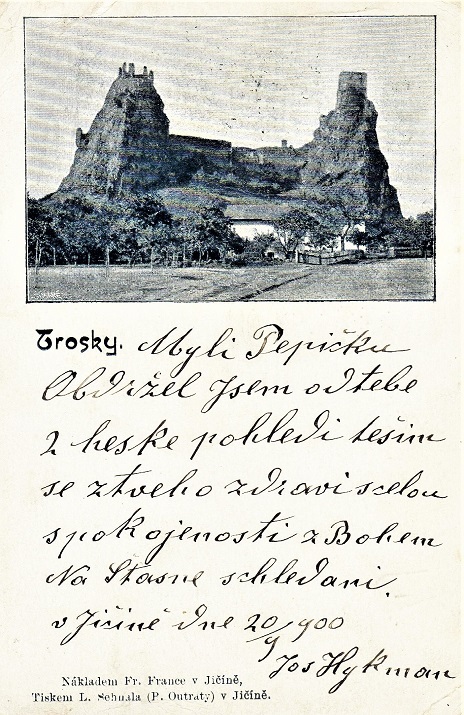 Trosky. Myli Pepičku
Obdržel Jsem od tebe
2 heske pohledi tešim
se ztveho zdravi scelou
spokojenosti z Bohem
Na Štasne schledani.
v Jičíně dne 20/9 900
Jos Hykman
Nákladem Fr. France v Jičíně,
Tiskem L. Sehnala (P. Outraty) v Jičíně.